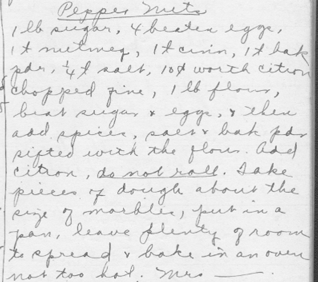 Pepper Nuts
1 lb sugar, 4 beaten eggs,
1 t nutmeg, 1 t cinn, 1 t bak
pdr, 1/4 t salt, 10¢ worth citron
chopped fine, 1 lb flour,
beat sugar & eggs, & then
add spices, salt & bak pdr
sifted with the flour. Add
citron, do not roll. Take
pieces of dough about the
size of marbles, put in a
pan, leave plenty of room
to spread & bake in an oven
not too hot. Mrs —